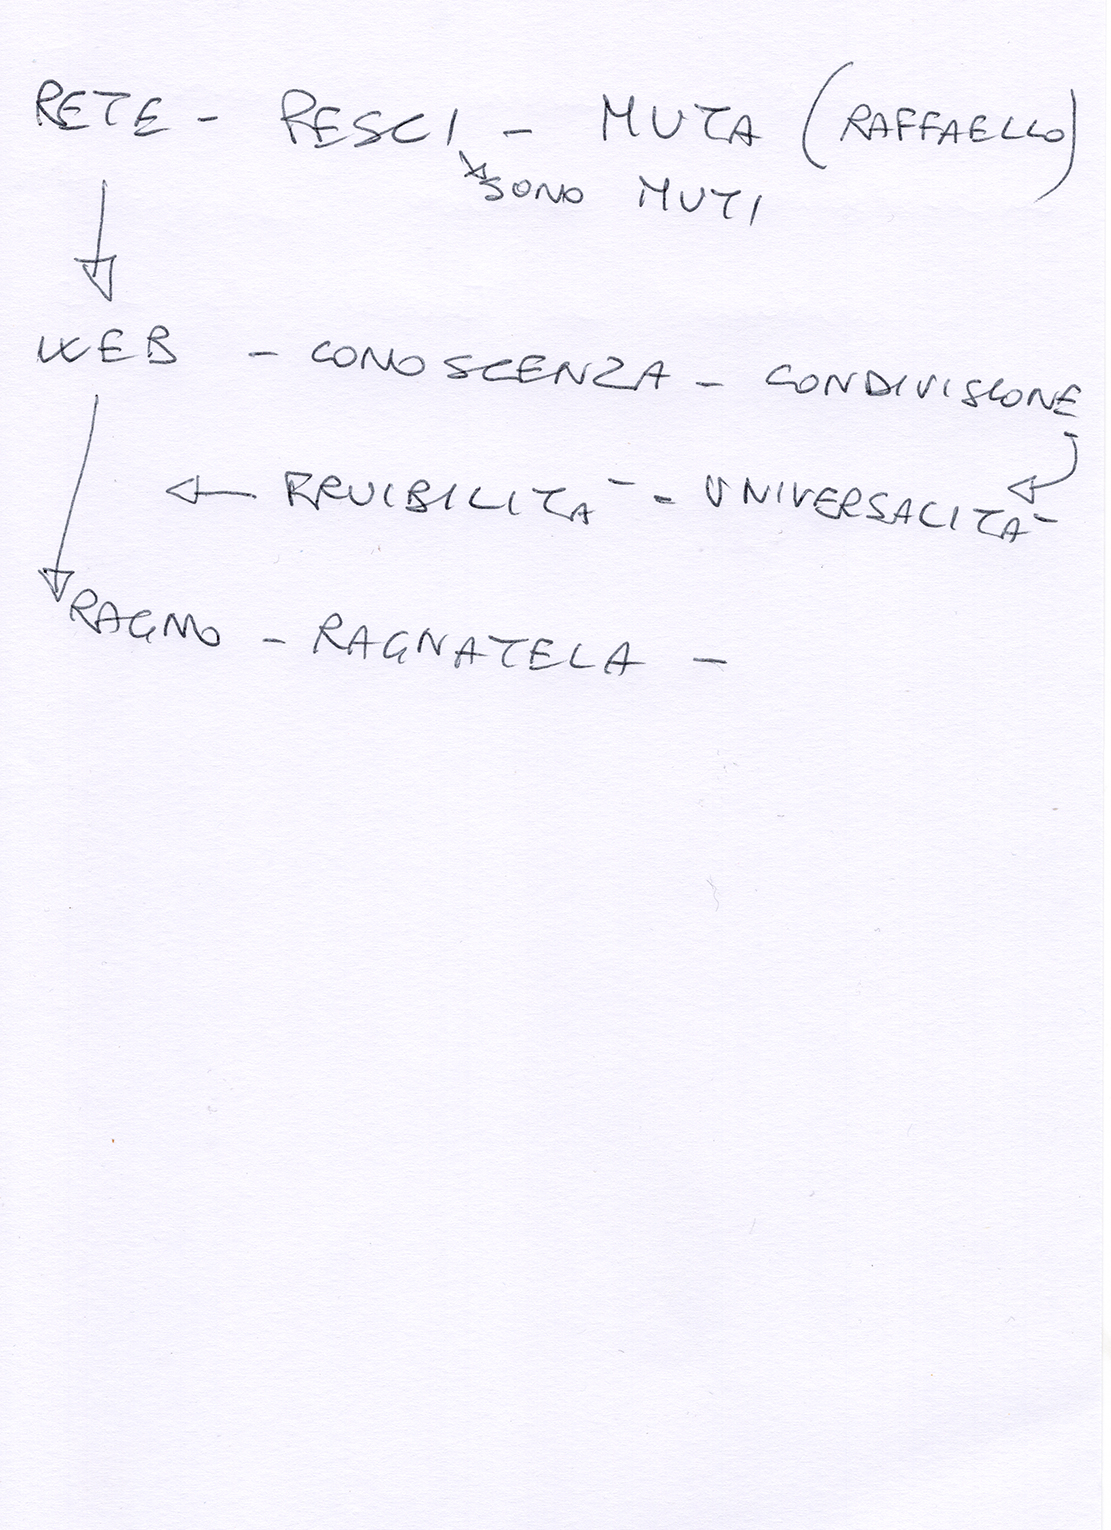 RETE - PESCI - MUTA (RAFFAELLO)
SONO MUTI
WEB - CONOSCENZA - CONDIVISIONE
FRUIBILITA' - UNIVERSALITA'
RAGNO - RAGNATELA -